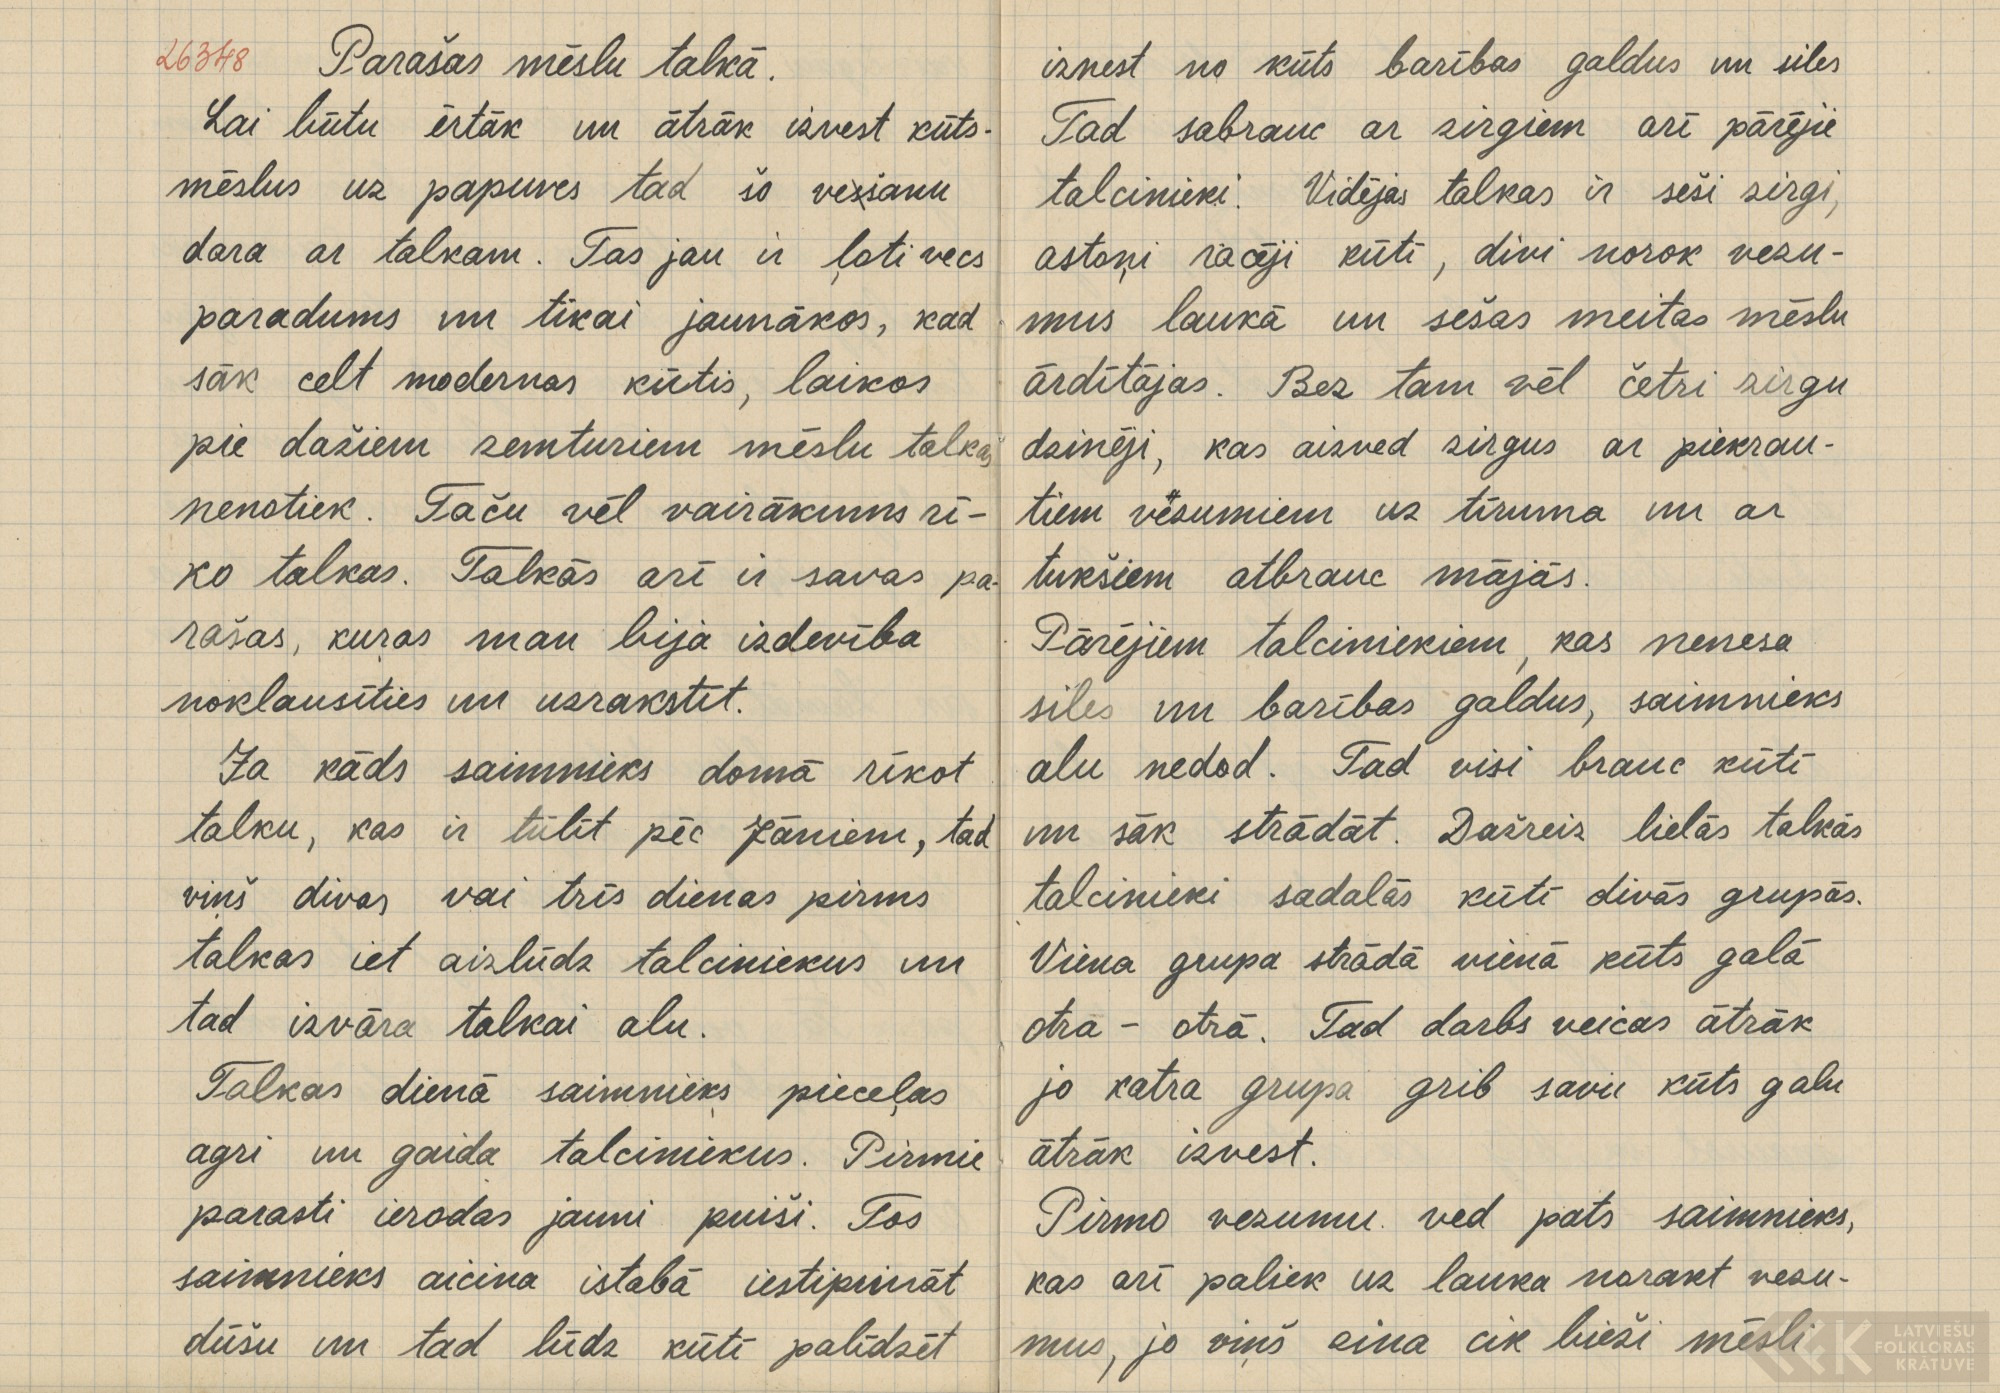 26348 Parašas mēslu talkā.
Lai būtu ērtāk un ātrāk izvest kūts-
mēslus uz papuves tad šo vešanu
dara ar talkam. Tas jau ir ļoti vecs
paradums un tikai jaunākos, kad
sāk celt modernas kūtis, laikos
pie dažiem zemturiem mēslu talkas
nenotiek. Taču vēl vairākums rī-
ko talkas. Talkās arī ir savas pa-
rašas, kuŗas man bija izdevība
noklausīties un uzrakstīt.
Ja kāds saimnieks domā rīkot
talku, kas ir tūlīt pēc Jāņiem, tad
viņš divas vai trīs dienas pirms
talkas iet aizlūdz talciniekus un
tad izvāra talkai alu.
Talkas dienā saimnieks pieceļas
agri un gaida talciniekus. Pirmie
parasti ierodas jauni puiši. Tos
saimnieks aicina istabā iestiprināt
dūšu un tad lūdz kūtī palīdzēt
iznest no kūts barības galdus un siles
Tad sabrauc ar zirgiem arī pārējie
talcinieki. Vidējas talkas ir seši zirgi,
astoņi racēji kūtī, divi norok vezu-
mus laukā un sešas meitas mēslu
ārdītājas. Bez tam vēl četri zirgu
dzinēji, kas aizved zirgus ar piekrau-
tiem vezumiem uz tīruma un ar
tukšiem atbrauc mājās.
Pārējiem talciniekiem, kas nenesa
siles un barības galdus, saimnieks
alu nedod. Tad visi brauc kūtī
un sāk strādāt. Dažreiz lielās talkās
talcinieki sadalās kūtī divās grupās.
Viena grupa strādā vienā kūts galā
otra - otrā. Tad darbs veicas ātrāk
jo katra grupa grib savu kūts galu
ātrāk izvest.
Pirmo vezumu ved pats saimnieks,
kas arī paliek uz lauka norakt vezu-
mus, jo viņš zina cik bieži mēsli
LATVIEŠU
FOLKLORAS
KRĀTUVE